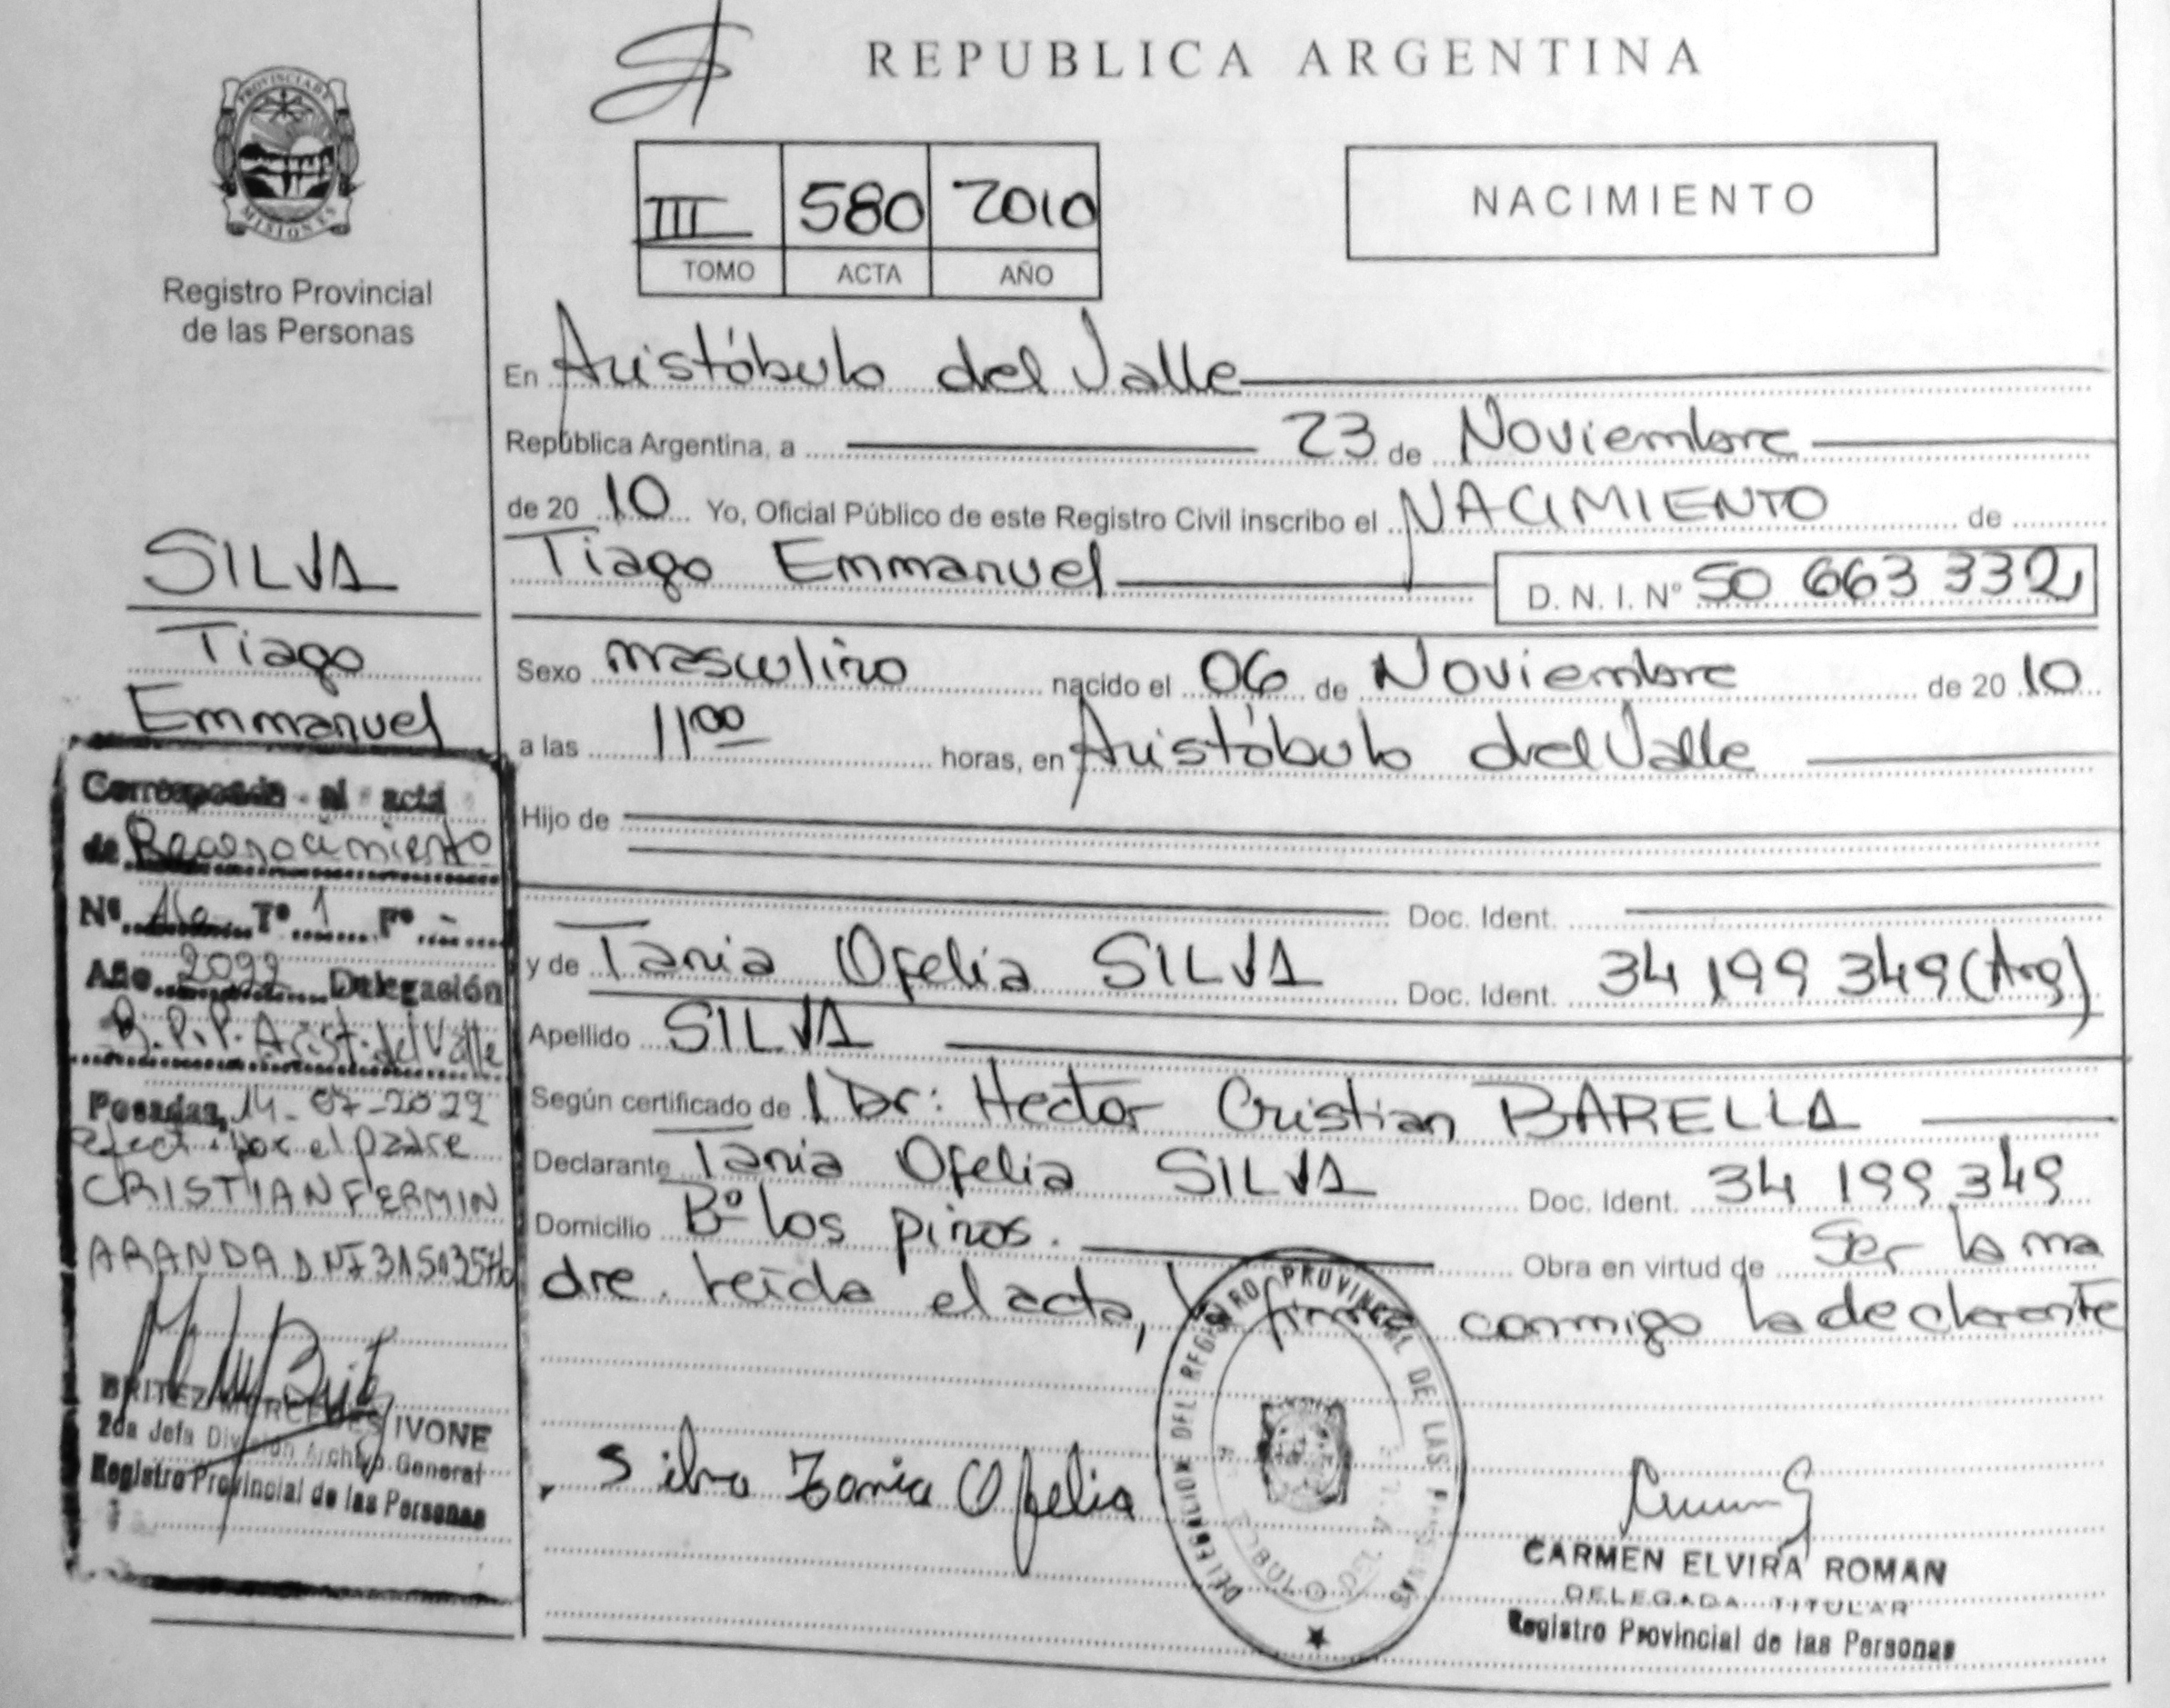 REPUBLICA ARGENTINA
PROVINCIA DE MISIONES
Registro Provincial
de las Personas
III 580 2010
TOMO ACTA AÑO
NACIMIENTO
En Aristóbulo del Valle
República Argentina, a 23 de Noviembre
de 20 10 Yo, Oficial Público de este Registro Civil inscribo el NACIMIENTO de
Tiago Emmanuel D. N. I. N° 50 663 332
Sexo masculino nacido el 06 de Noviembre de 20 10
a las 11 00 horas, en Aristóbulo del Valle
Hijo de
Doc. Ident.
y de Tania Ofelia SILVA Doc. Ident. 34 199 349 (Arg)
Apellido SILVA
Según certificado de l Dr: Hector Cristian BARELLA
Declarante Tania Ofelia SILVA Doc. Ident. 34 199 349
Domicilio Bº los pinos. Obra en virtud de Ser la ma
dre. leída el acta, la firma conmigo la declarante
Silva Tania Ofelia
DELEGACION DEL REGISTRO PROVINCIAL DE LAS PERSONAS
CARMEN ELVIRA ROMAN
DELEGADA TITULAR
Registro Provincial de las Personas
SILVA
Tiago
Emmanuel
Corresponde al acta
de Reconocimiento
Nº Tº 1 Fº -
Año 2022 Delegación
R.P.P. Arist. del Valle
Posadas, 14-07-2022
efect. por el padre
CRISTIAN FERMIN
ARANDA DNI
BRITEZ MERCEDES IVONE
2da Jefa División Archivo General
Registro Provincial de las Personas